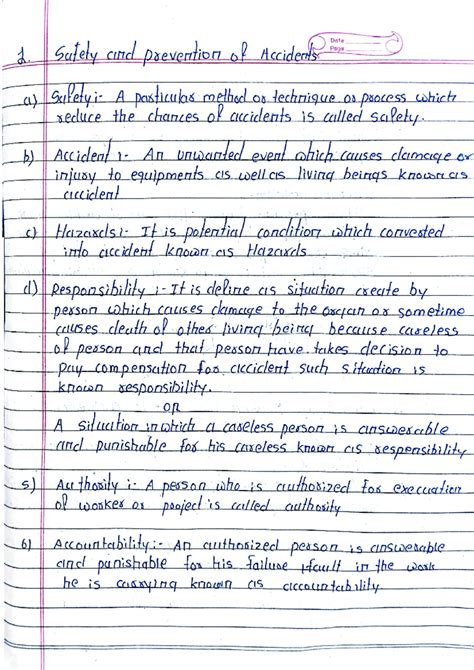 1. Safety and prevention of Accidents
Date
Page
a) Safety :- A particular method or technique or process which
reduce the chances of accidents is called safety.
b) Accident :- An unwanted event which causes damage or
injury to equipments as well as living beings known as
accident
c) Hazards :- It is potential condition which converted
into accident known as Hazards
d) Responsibility :- It is define as situation create by
person which causes damage to the organ or sometime
causes death of other living being because careless
of person and that person have takes decision to
pay compensation for accident such situation is
known responsibility.
OR
A situation in which a careless person is answerable
and punishable for his careless known as responsibility
5) Authority :- A person who is authorized for execuation
of worker or project is called authority
6) Accountability :- An authorized person is answerable
and punishable for his failure /fault in the work
he is carrying known as accountability